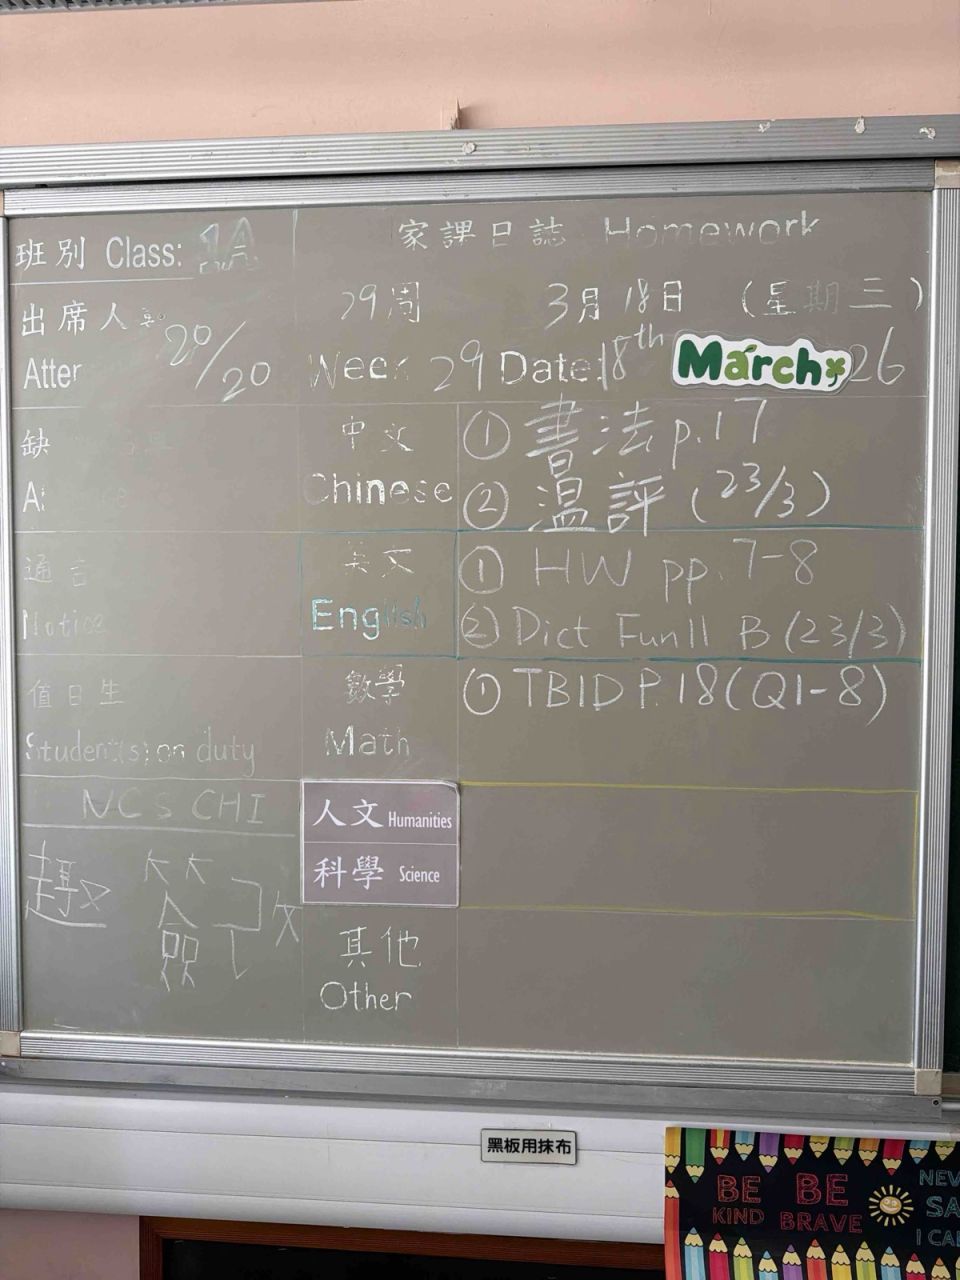 班別 Class: 1A
家課日誌 Homework
出席人
20/20
Atten
29周 3月18日 (星期三)
Week 29 Date: 18th March, 26
缺
中文
Chinese
① 書法 p.17
② 溫評 (23/3)
通告
Notice
英文
English
① HW pp. 7-8
② Dict Fun 11 B (23/3)
值日生
Student(s) on duty
數學
Math
① TB1D P.18 (Q1-8)
NCS CHI
趕
人文 Humanities
科學 Science
其他
Other
黑板用抹布
BE KIND
BE BRAVE